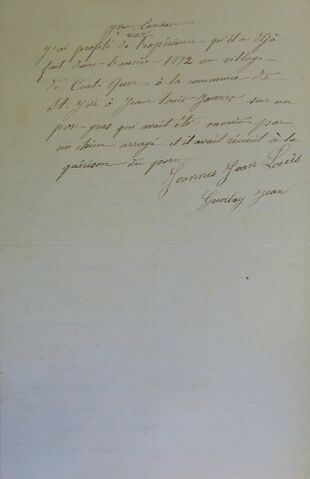 Yves Lancien
j'ai profité de l'expérience qu'il a déjà
fait dans l'année 1882 au village
de Coat à la commune de
St Yvi à Jean Louis sur un
porc gras qui avait été mordu par
un chien arragé et il avait réussit à la
guérison du porc
Jeannes Jean Louis
Gourlay Jean